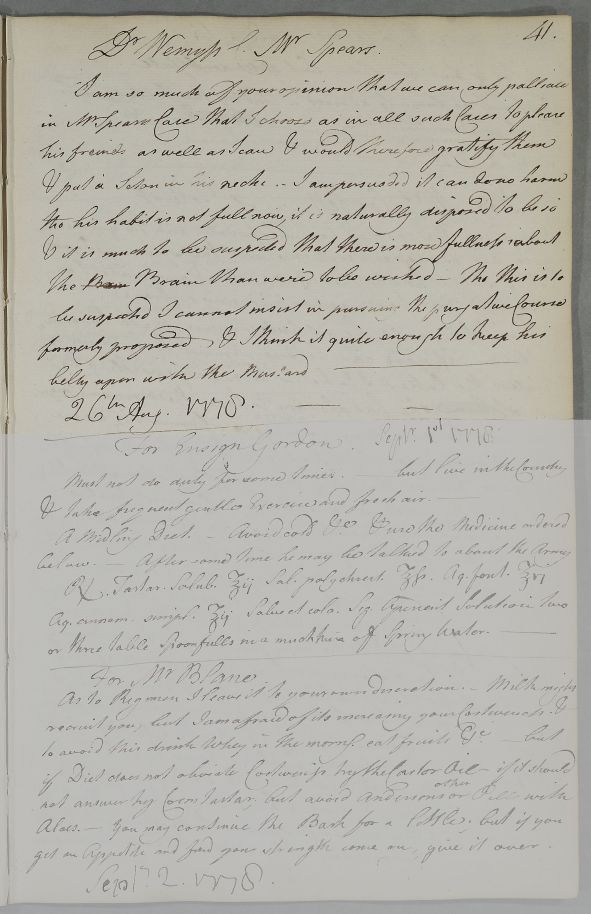 41.
Dr Wemyss f. Mr Spears.
I am so much of your opinion that we can only palliate
in Mr Spears Case that I choose as in all such Cases to please
his freinds as well as I can & would therefore gratify them
& put a Seton in his necke - I am persuaded it can do no harm
tho his habit is not full now, it is naturally disposed to be so
& it is much to be suspected that there is more fullness about
the Brain than were to be wished - Tho this is to
be suspected I cannot insist in pursuing the purgative Course
formerly proposed, & I think it quite enough to keep his
belly open with the Mustard
26th Aug. 1778.
For Ensign Gordon. Septr. 1st 1778
Must not do duty for some time. - but live in the Country
& take frequent gentle Exercise and fresh air. -
A Midling Diet. - Avoid cold &c & use the Medicine ordered
below. - After some time he may be talked to about the Army
Rx. Tartar. Solub. ʒij Sal. polychrest. ʒſs. Aq. font. ℥vj
Aq. cinnam. simpl. ℥ij Solve et cola. Sig. Aperient Solution two
or three table Spoonfulls in a mutchkin of Spring Water.
For Mr Blane
As to Regimen I leave it to your own discretion. - Milk might
recruit you, but I am afraid of its increasing your Costiveness. &
to avoid this drink Whey in the morng. eat fruits &c - but
if Diet does not obviate Costiveness try the Castor Oil - if it should
not answer try Crem tartar, but avoid Andersons or other Pills with
Aloes. - You may continue the Bark for a little. but if you
get an Appetite and find your strength come on, give it over.
Sept. 2. 1778.